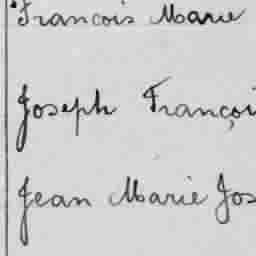 François Marie
Joseph Françoi
Jean Marie Jos